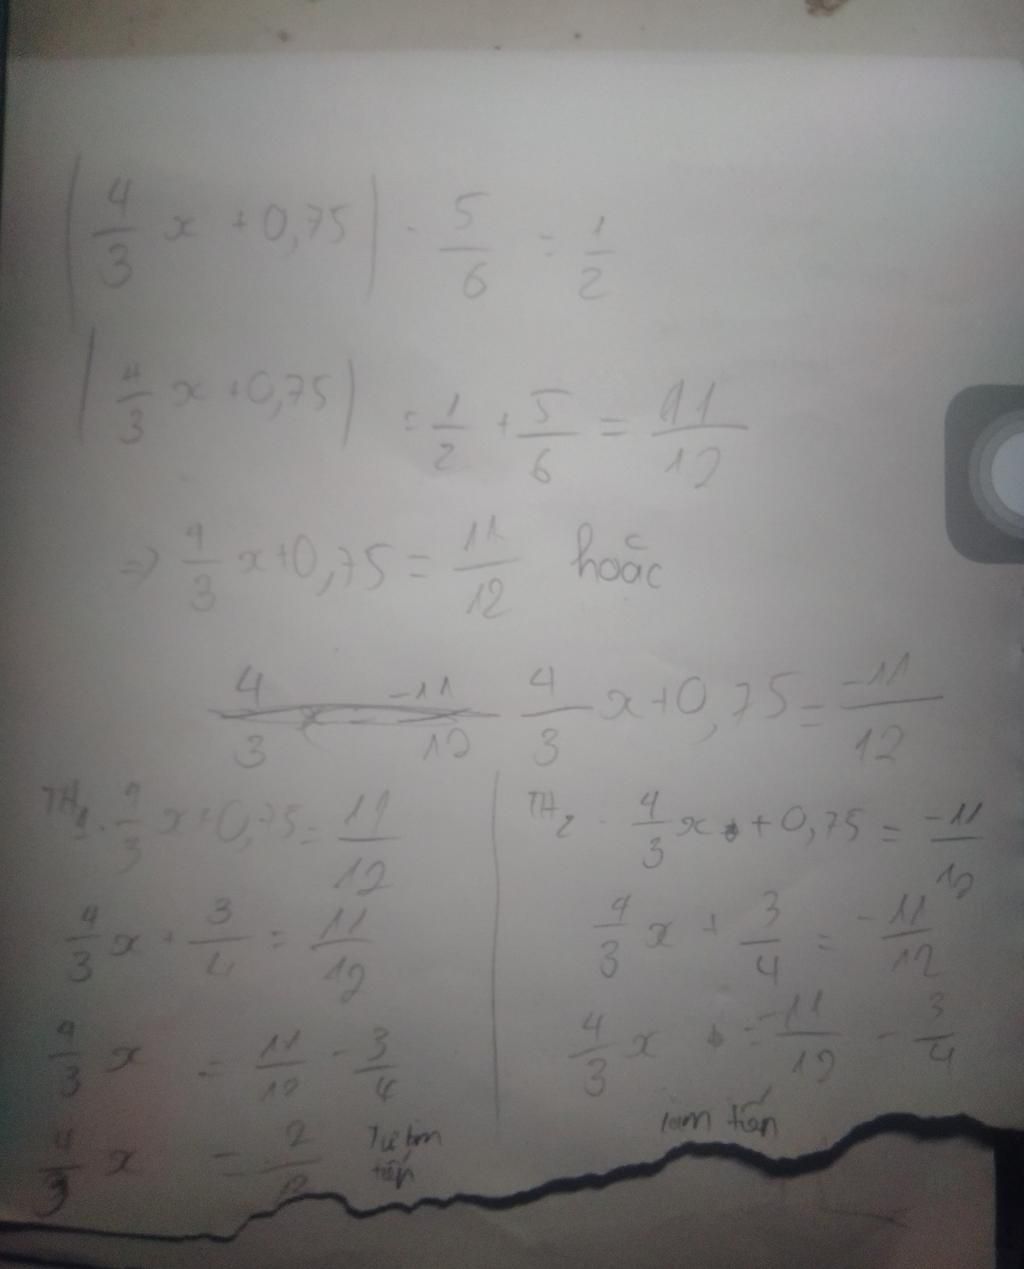 |4/3 x + 0,75| - 5/6 = 1/2
|4/3 x + 0,75| = 1/2 + 5/6 = 11/12
=> 4/3 x + 0,75 = 11/12 hoặc
4/3 x + 0,75 = -11/12
TH1. 4/3 x + 0,75 = 11/12
4/3 x + 3/4 = 11/12
4/3 x = 11/12 - 3/4
4/3 x = 2/12 Tự làm
tiếp
TH2. 4/3 x + 0,75 = -11/12
4/3 x + 3/4 = -11/12
4/3 x = -11/12 - 3/4
làm tiếp